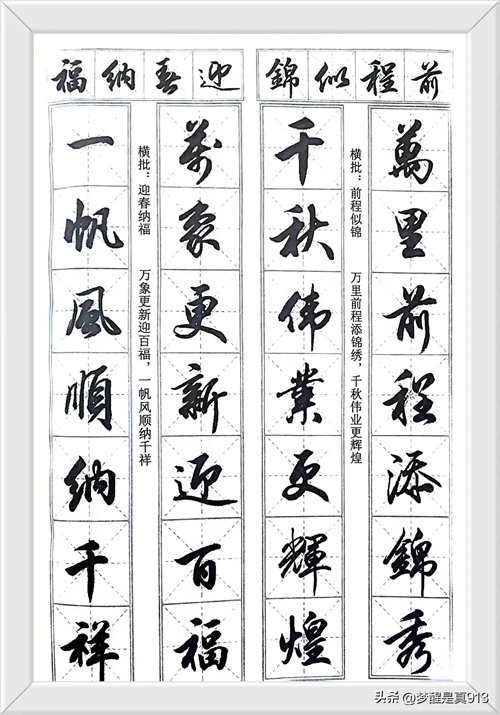 前程似錦
萬里前程添錦秀
横批：前程似锦 万里前程添锦绣，千秋伟业更辉煌
千秋偉業更輝煌
迎春納福
萬象更新迎百福
横批：迎春纳福 万象更新迎百福，一帆风顺纳千祥
一帆風順納千祥
头条 @梦醒是真913